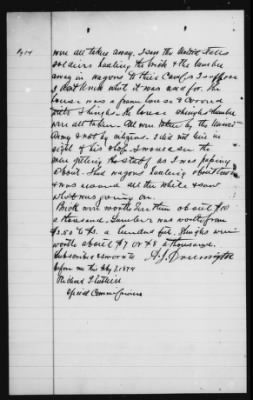 Pg 14
were all taken away. I saw the United States
soldiers hauling the brick & the lumber
away in wagons to their Camps I suppose
I dont know what it was used for. The
house was a frame house & covered
with shingles. The house shingles lumber
were all taken. All were taken by the Union
Army & not by citizens. I did not live in
sight of his shop. I would see the
men getting the stuff as I was passing
about. Had wagons hauling about here
& was around all the while & saw
what was going on.
Brick were worth here then about $10
a thousand. Lumber was worth from
$2.50 to $3. a hundred feet. Shingles were
worth about $7 or $8 a thousand.
Subscribed & sworn to A. J.
before me this July 7, 1874
Special Commissioner